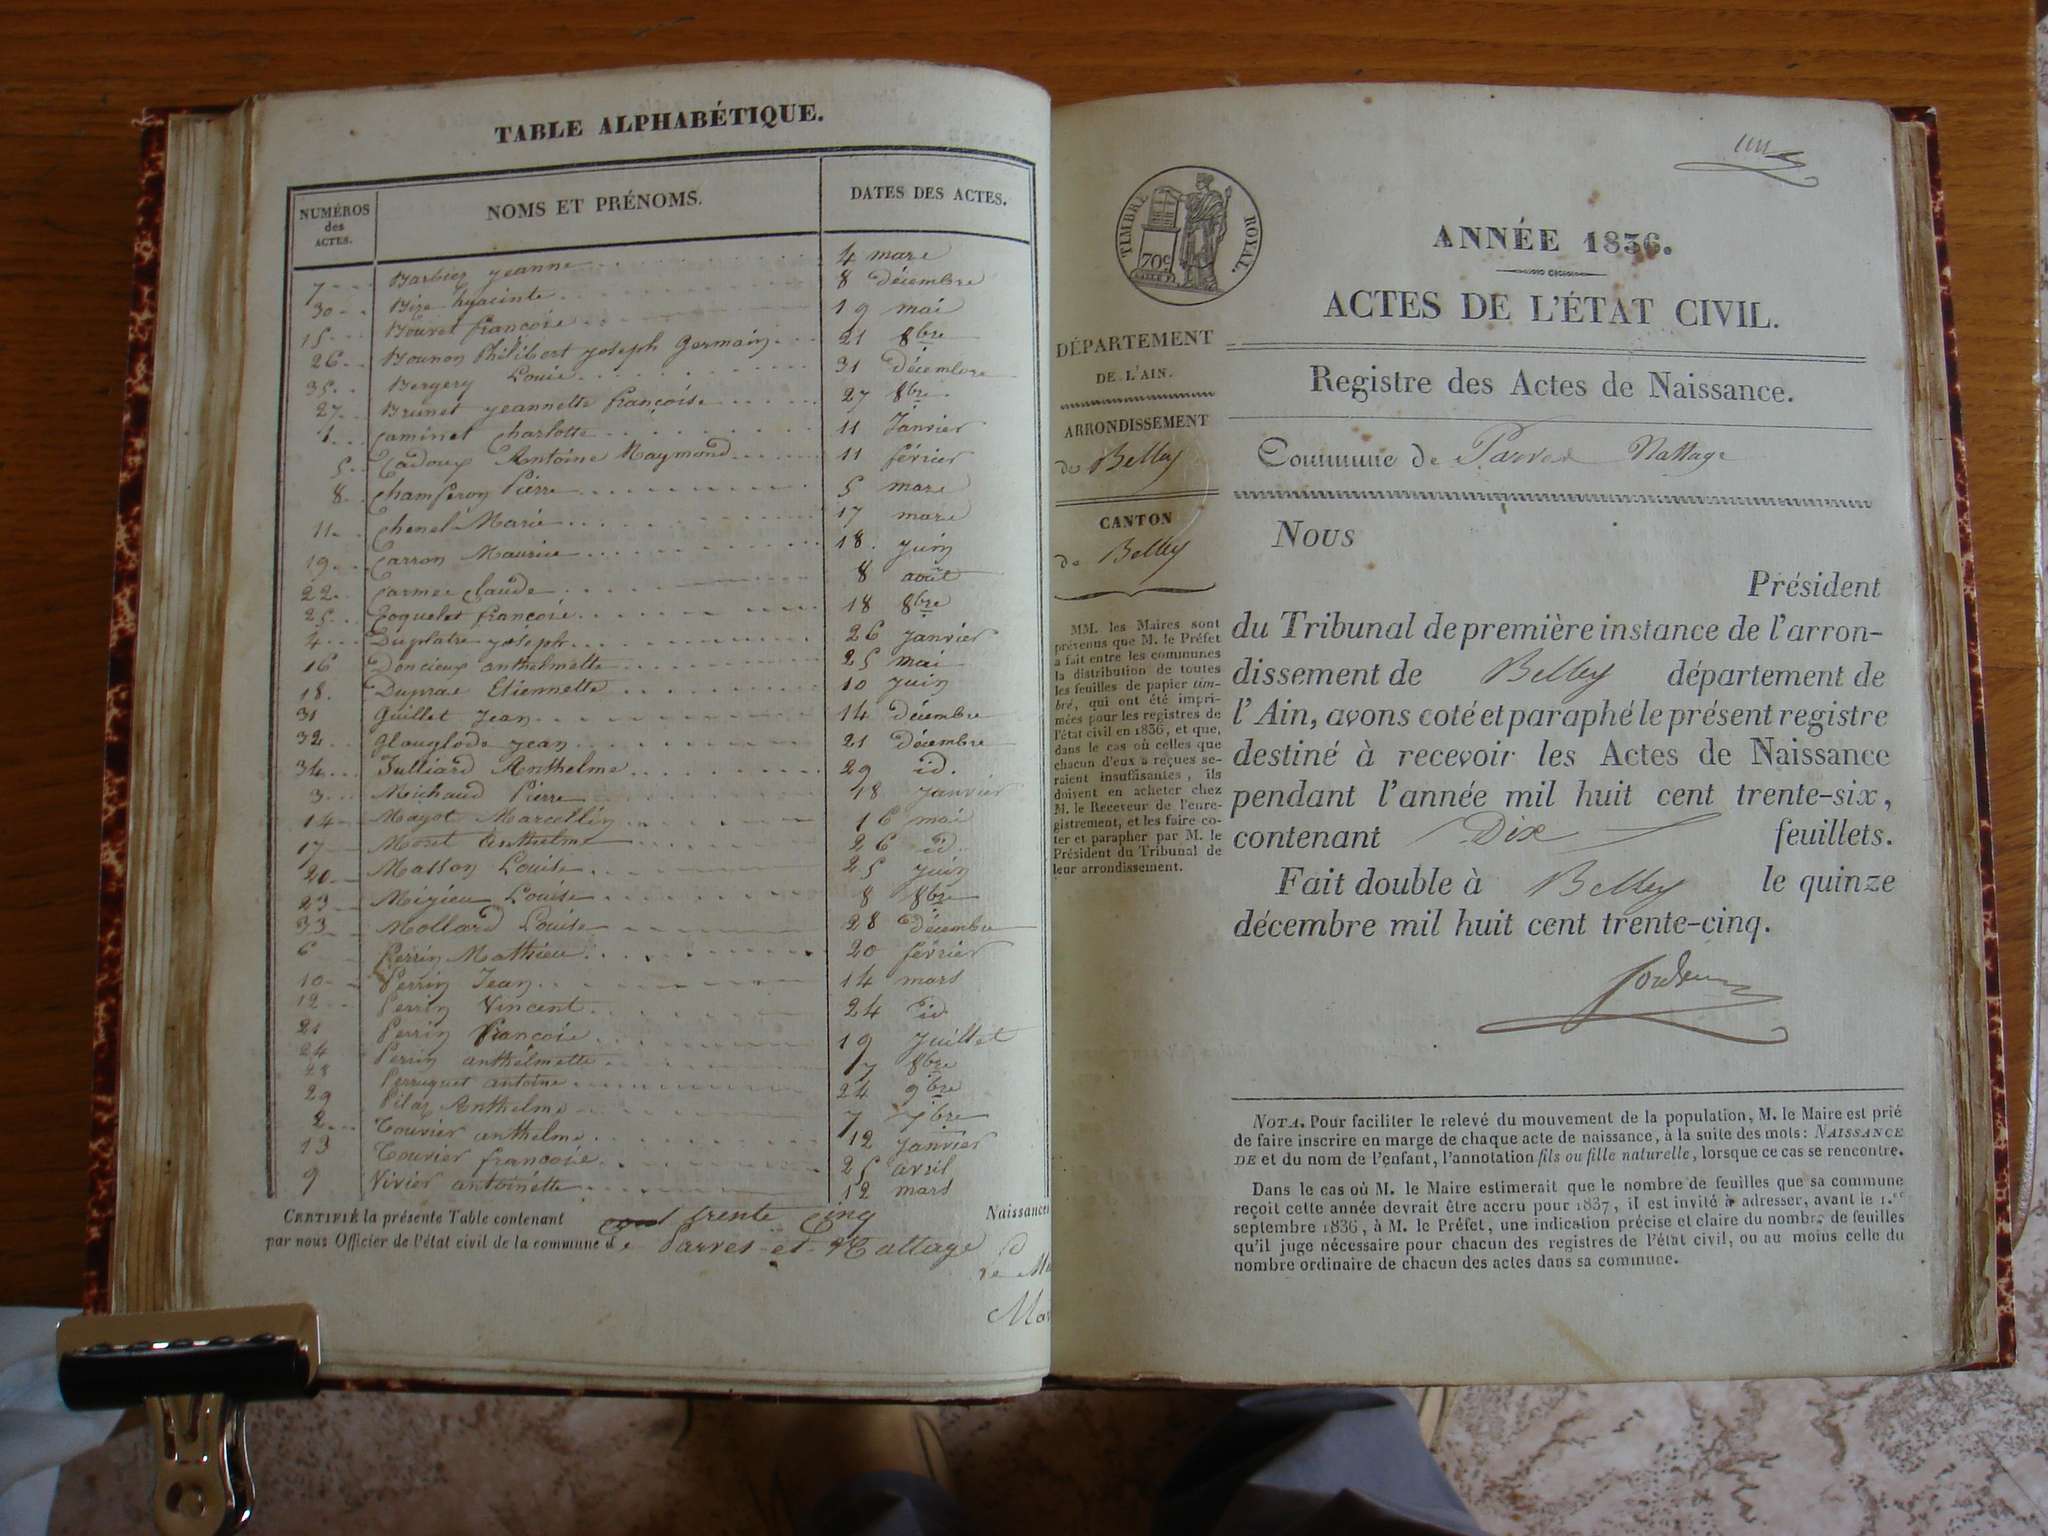 TABLE ALPHABÉTIQUE.
NUMÉROS des ACTES. NOMS ET PRÉNOMS. DATES DES ACTES.
7 Barbier jeanne 4 mars
30 Bize hyacinte 8 décembre
15 Bouvet françoise 19 mai
26 Bounon Philibert joseph Germain 21 8bre
35 Bergery Louise 31 Décembre
27 Brunet jeannette françoise 27 8bre
1 Caminet Charlotte 11 Janvier
5 Cadoux Antoine Raymond 11 février
8 Chamferon Pierre 5 mars
11 Chenel Marie 17 mars
19 Carron Maurice 18 juin
22 Carmee Claude 8 août
25 Coquelet françoise 18 8bre
4 Duplatre joseph 26 janvier
16 Doncieux anthelmette 25 mai
18 Duprae Etiennette 10 juin
31 Guillet Jean 14 décembre
32 Glauglode jean 21 Décembre
34 Julliard Anthelme 29 id.
3 Michaud Pierre 18 janvier
14 Mayot Marcellin 16 mai
17 Moret Anthelme 26 id.
20 Masson Louise 25 juin
23 Migieu Louise 8 8bre
33 Mollard Louise 28 décembre
6 Perrin Mathieu 20 février
10 Perrin Jean 14 mars
12 Perrin Vincent 24 id
21 Perrin Françoise 19 Juillet
24 Perrin anthelmette 17 8bre
28 Perruquet antoine 24 9bre
29 Pilaz Anthelme 7 xbre
2 Touvier anthelme 12 janvier
13 Touvier françoise 25 avril
9 Vivier antoinette 12 mars
CERTIFIÉ la présente Table contenant trente Cinq Naissances
par nous Officier de l'état civil de la commune de Parves et Nattage
Mar
TIMBRE ROYAL.
70c
ANNÉE 1836.
ACTES DE L'ÉTAT CIVIL.
Registre des Actes de Naissance.
Commune de Parves Nattage
DÉPARTEMENT
DE L'AIN.
ARRONDISSEMENT
de Belley
CANTON
de Belley
MM. les Maires sont
prévenus que M. le Préfet
a fait entre les communes
la distribution de toutes
les feuilles de papier tim-
bré, qui ont été impri-
mées pour les registres de
l'état civil en 1836, et que,
dans le cas où celles que
chacun d'eux a reçues se-
raient insuffisantes, ils
doivent en acheter chez
M. le Receveur de l'enre-
gistrement, et les faire co-
ter et parapher par M. le
Président du Tribunal de
leur arrondissement.
Nous
Président
du Tribunal de première instance de l'arron-
dissement de Belley département de
l'Ain, avons coté et paraphé le présent registre
destiné à recevoir les Actes de Naissance
pendant l'année mil huit cent trente-six,
contenant Dix feuillets.
Fait double à Belley le quinze
décembre mil huit cent trente-cinq.
NOTA. Pour faciliter le relevé du mouvement de la population, M. le Maire est prié
de faire inscrire en marge de chaque acte de naissance, à la suite des mots: NAISSANCE
DE et du nom de l'enfant, l'annotation fils ou fille naturelle, lorsque ce cas se rencontre.
Dans le cas où M. le Maire estimerait que le nombre de feuilles que sa commune
reçoit cette année devrait être accru pour 1837, il est invité à adresser, avant le 1.er
septembre 1836, à M. le Préfet, une indication précise et claire du nombre de feuilles
qu'il juge nécessaire pour chacun des registres de l'état civil, ou au moins celle du
nombre ordinaire de chacun des actes dans sa commune.